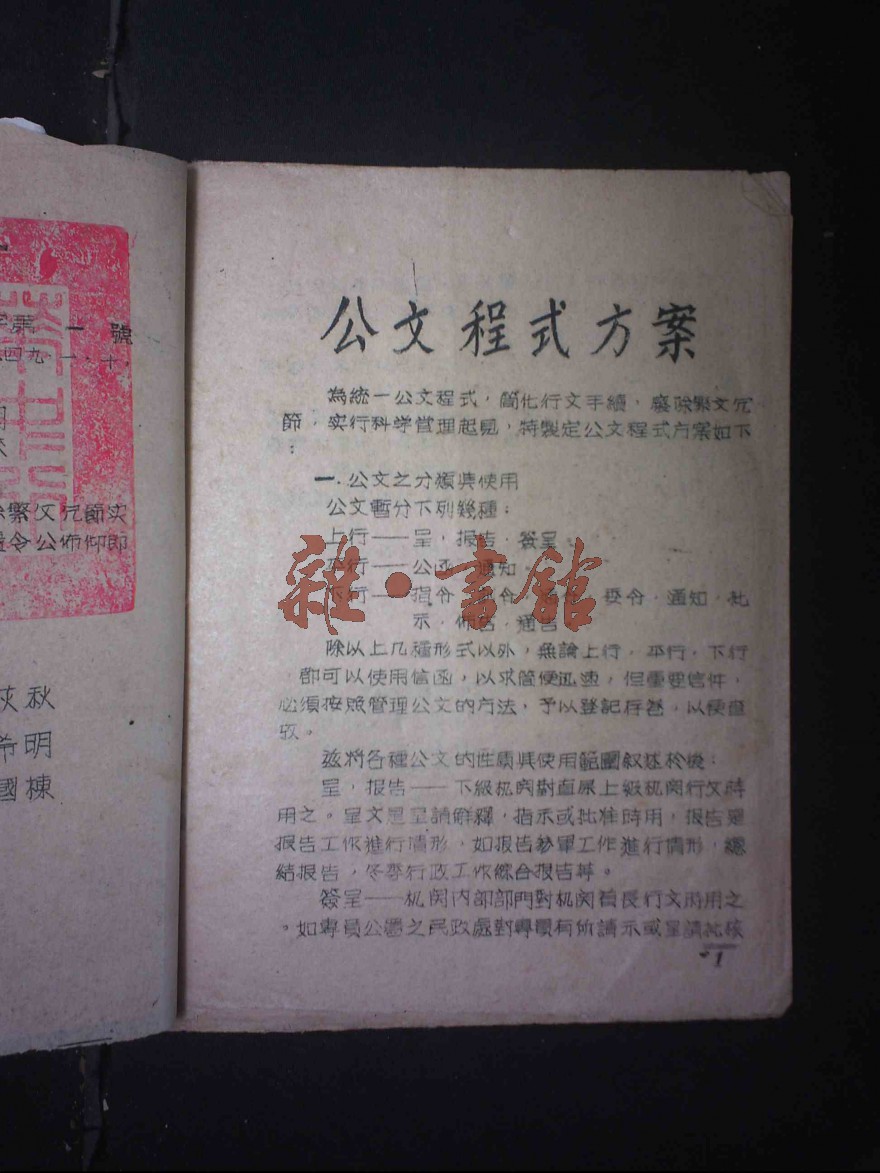 字第一號
九四九·一·十
繁文冗節实
令公佈仰即
秋
希明
國棟
公文程式方案
為統一公文程式，簡化行文手續，廢除繁文冗
節，实行科学管理起見，特製定公文程式方案如下
：
一．公文之分類與使用
公文暫分下列幾種：
上行——呈，报告，簽呈。
平行——公函，通知。
下行——指令，令，委令，通知，批
示，佈告，通告
除以上几種形式以外，無論上行，平行，下行
，都可以使用信函，以求簡便迅速，但重要信件，
必須按照管理公文的方法，予以登記存卷，以便查
玫。
茲將各種公文的性質與使用範圍叙述於後：
呈，报告——下級机関對直屬上級机関行文時
用之。呈文是呈請解釋，指示或批准時用，报告是
报告工作進行情形，如报告参軍工作進行情形，總
結报告，冬季行政工作綜合报告等。
簽呈——机関内部部門對机関首長行文時用之
。如專員公署之民政處對專員有所請示或呈請批核
1
雜·書館